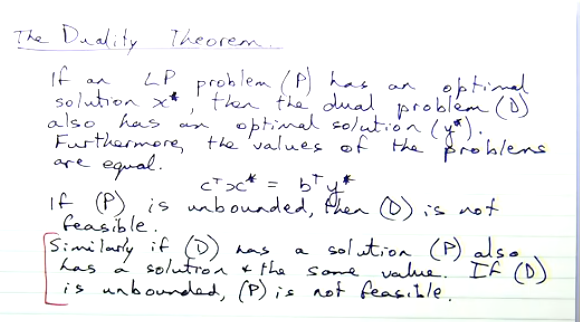 The Duality Theorem.
If an LP problem (P) has an optimal
solution x*, then the dual problem (D)
also has an optimal solution (y*).
Furthermore, the values of the problems
are equal.
cᵀx* = bᵀy*
If (P) is unbounded, then (D) is not
feasible.
Similarly if (D) has a solution (P) also
has a solution & the same value. If (D)
is unbounded, (P) is not feasible.